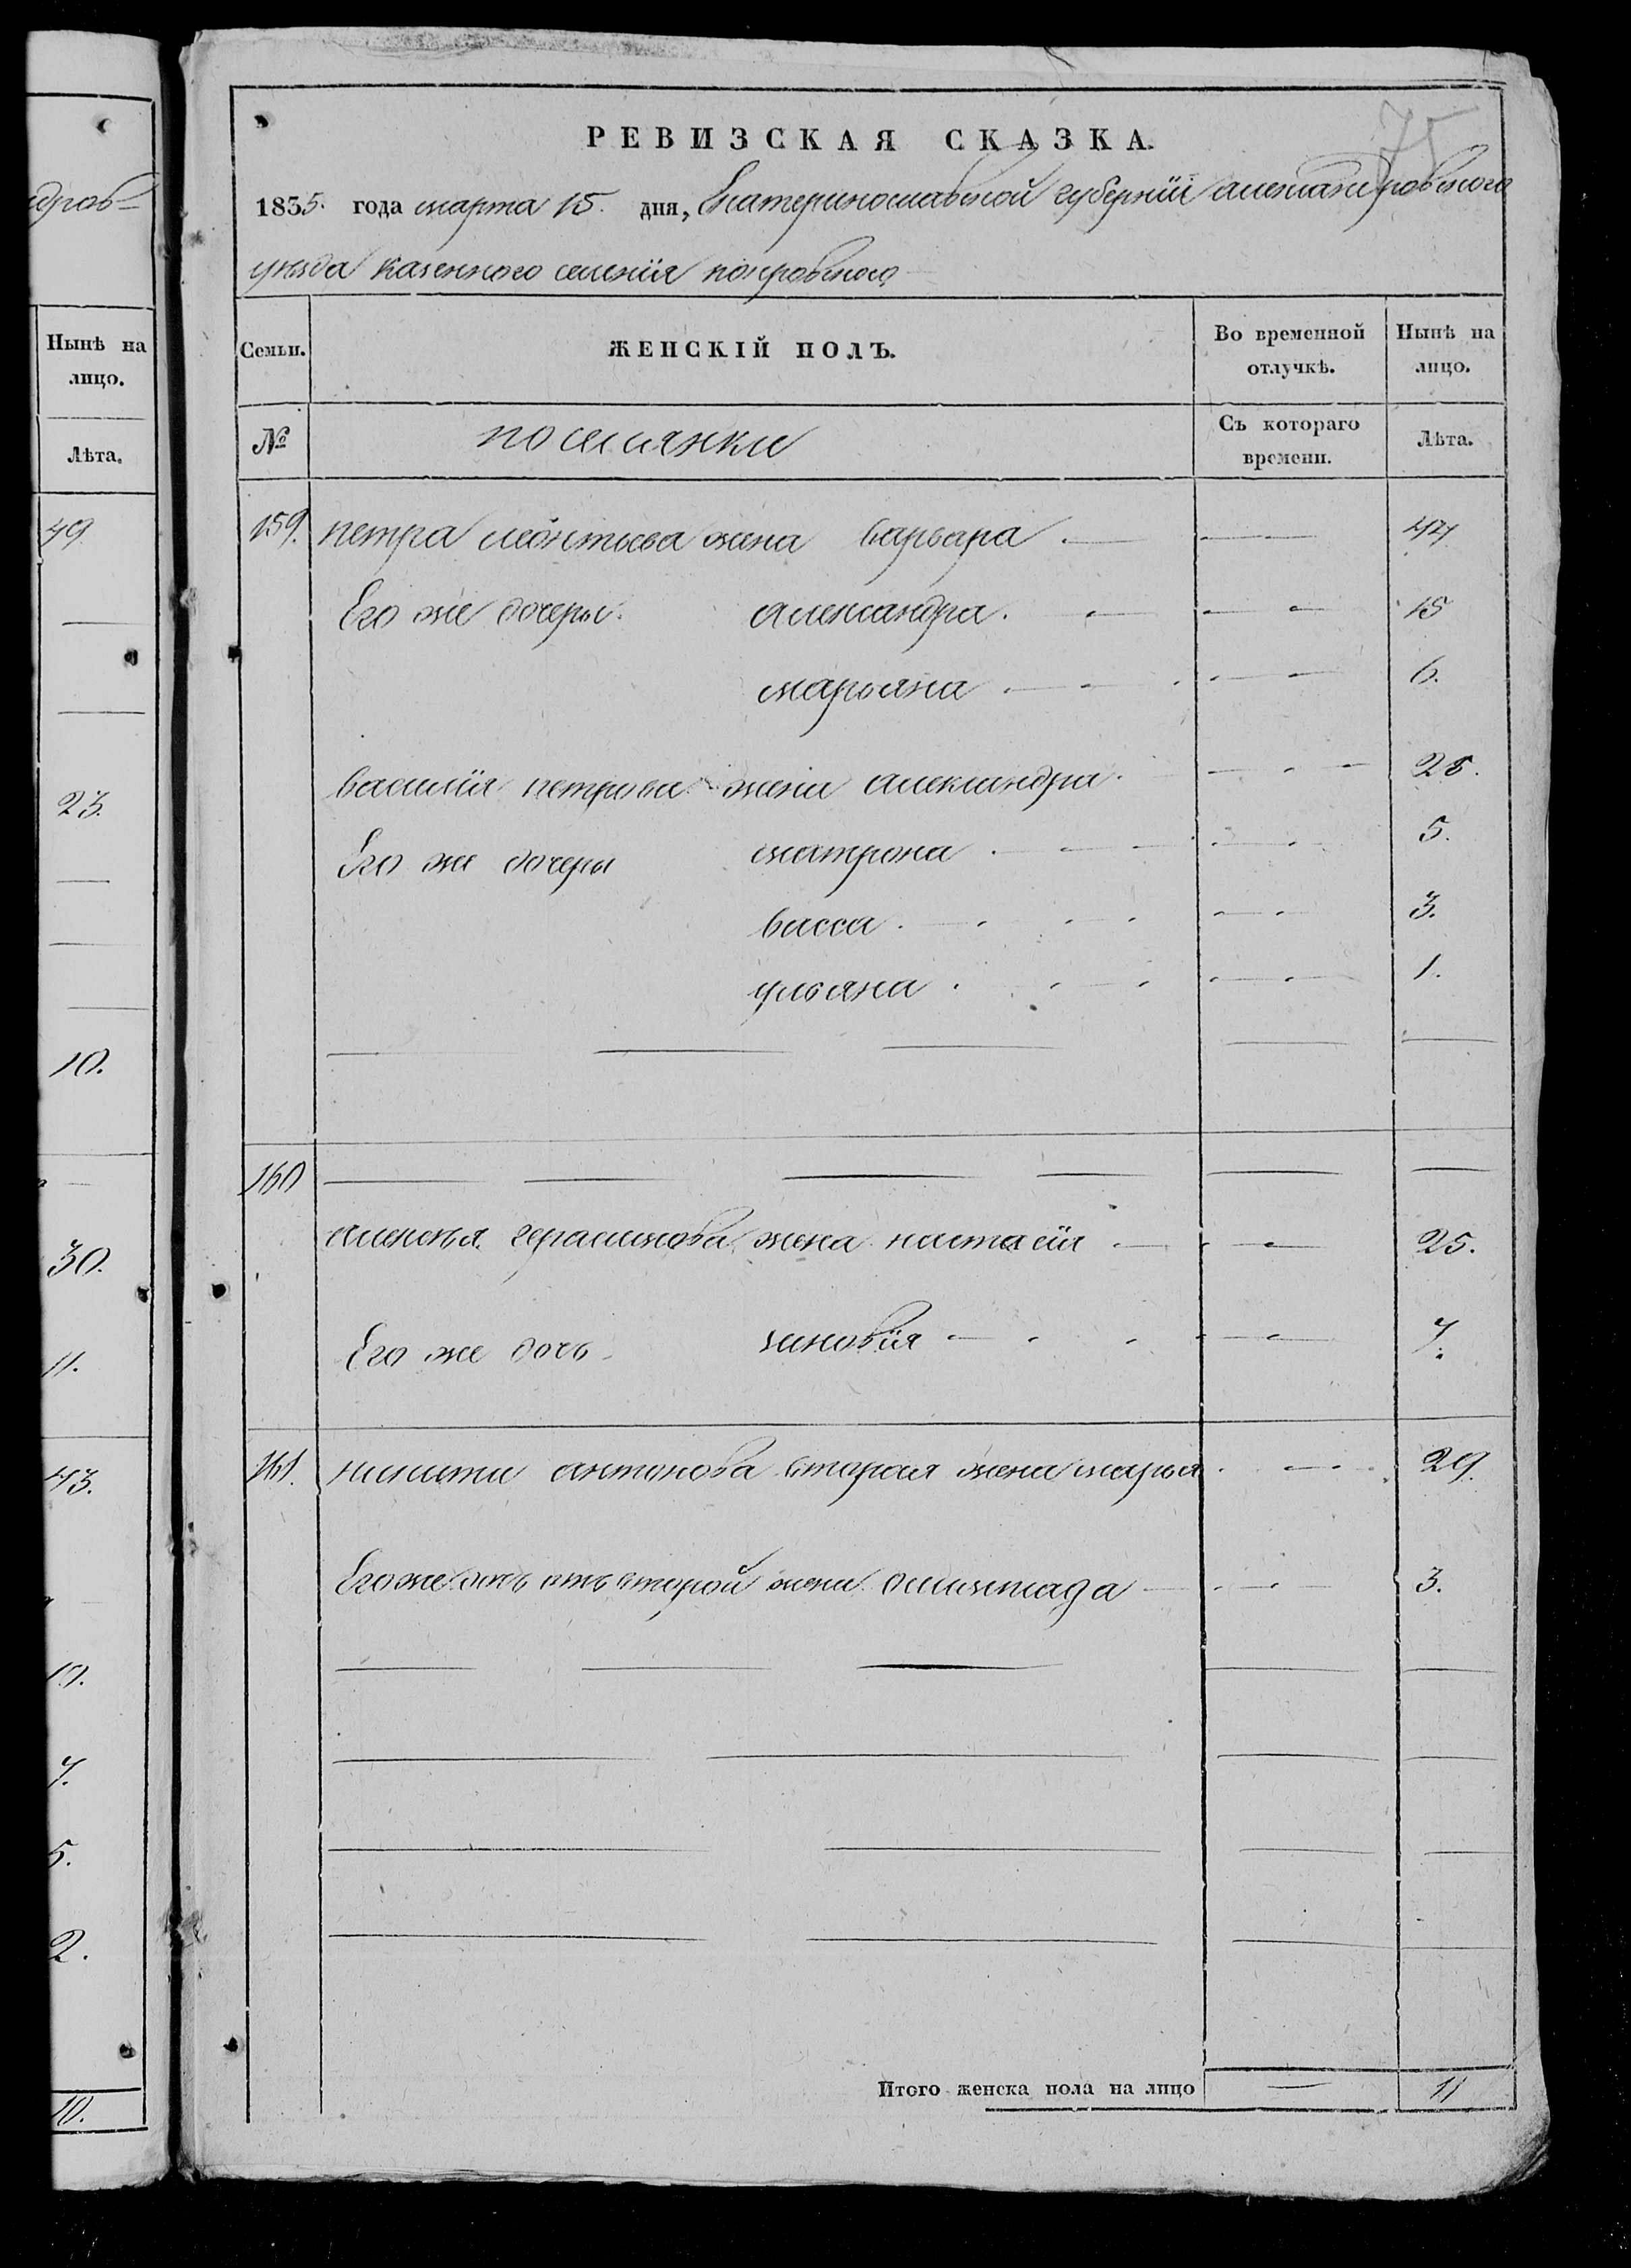 дров-
Нынѣ на
лицо.
Лѣта.
49
23.
10.
30.
11.
43.
10.
7.
5.
2.
10.
75
РЕВИЗСКАЯ СКАЗКА.
1835. года марта 15. дня, Екатеринославской губернїи александровского
уѣзда казенного селенїя покровского
Семьи.
ЖЕНСКІЙ ПОЛЪ.
Во временной отлучкѣ.
Нынѣ на лицо.
№
поселянки
Съ котораго времени.
Лѣта.
159. петра леонтьева жена варвара 44
Его же дочеры. александра. 15
марьяна 6.
василїя петрова жена александра 28.
Его же дочеры матрона 5.
васса. 3.
ульяна 1.
160
алексѣя герасимова жена настасїя 25.
Его же дочь зиновїя 7.
161. никиты антонова вторая жена марья 29.
Его же дочь отъ второй жены 3.
Итого женска пола на лицо 11